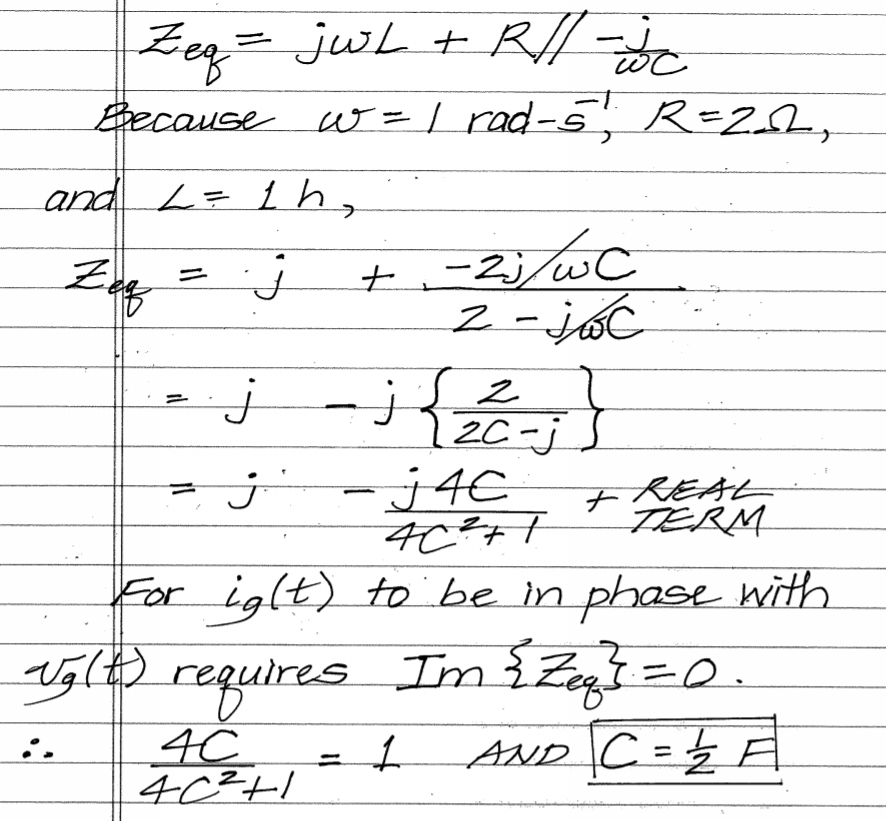 Zeq = jωL + R// -j/ωC
Because ω = 1 rad-s⁻¹, R=2Ω,
and L = 1 h,
Zeq = j + (-2j/ωC)/(2 - j/ωC)
= j - j{2/(2C-j)}
= j - j4C/(4C²+1) + REAL TERM
For ig(t) to be in phase with
vg(t) requires Im{Zeq}=0.
∴ 4C/(4C²+1) = 1 AND C = 1/2 F